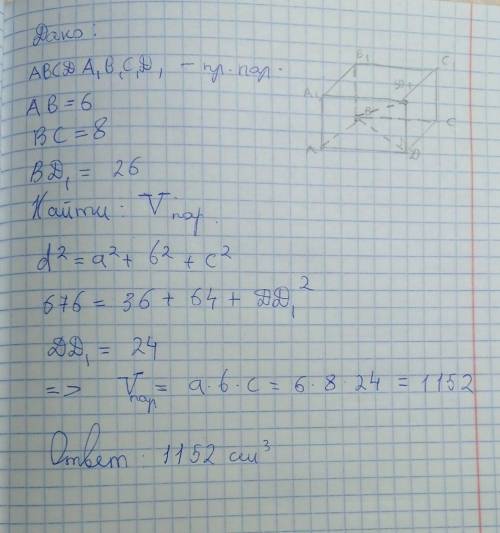 Дано:
ABCDA₁B₁C₁D₁ - пр. пар.
AB = 6
BC = 8
BD₁ = 26
Найти: Vпар.
d² = a² + b² + c²
676 = 36 + 64 + DD₁²
DD₁ = 24
=> Vпар = a · b · c = 6 · 8 · 24 = 1152
Ответ: 1152 см³
B₁
C₁
A₁
D₁
B
C
A
D